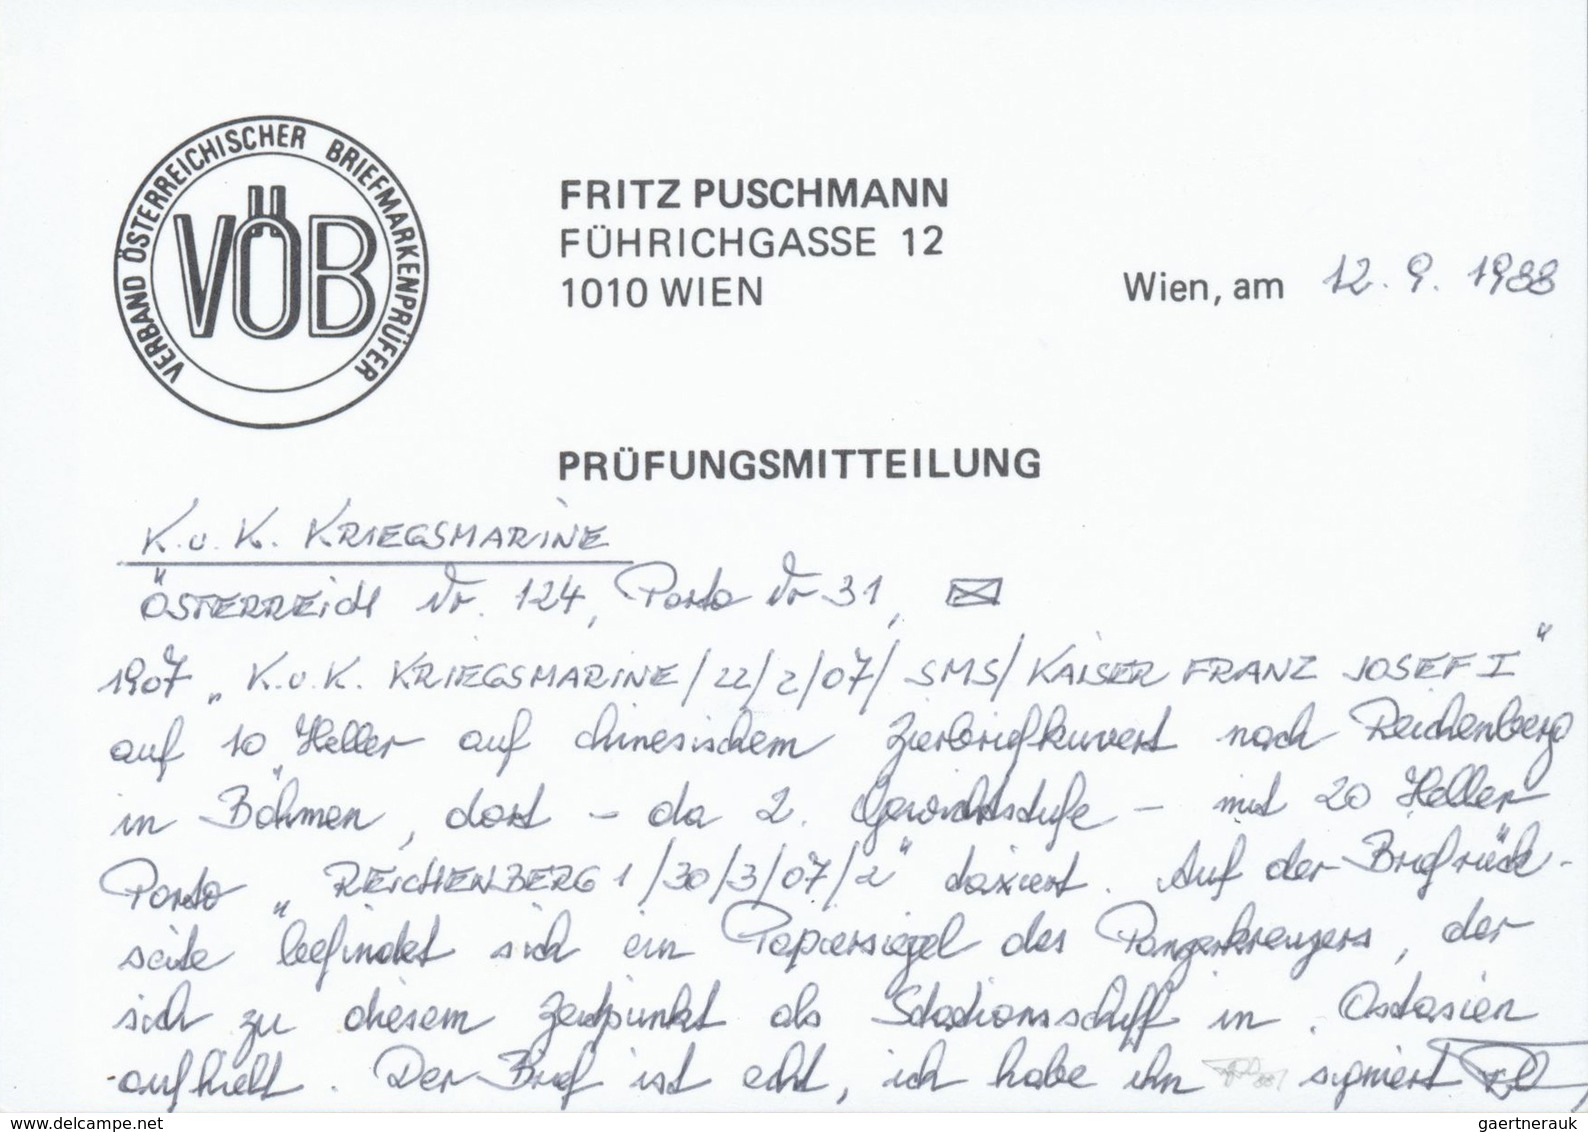 VERBAND ÖSTERREICHISCHER BRIEFMARKENPRÜFER
VÖB
FRITZ PUSCHMANN
FÜHRICHGASSE 12
1010 WIEN
Wien, am 12. 9. 1988
PRÜFUNGSMITTEILUNG
K. u. K. KRIEGSMARINE
ÖSTERREICH Nr. 124, Porto Nr 31,
1907 „K. u. K. KRIEGSMARINE/22/2/07/SMS/KAISER FRANZ JOSEF I"
auf 10 Heller auf chinesischem Zierbriefkuvert nach Reichenberg
in Böhmen, dort – da 2. Gewichtsstufe – mit 20 Heller
Porto „REICHENBERG 1/30/3/07/2" taxiert. Auf der Briefrück-
seite befindet sich ein Papiersiegel des Panzerkreuzers, der
sich zu diesem Zeitpunkt als Stationsschiff in Ostasien
aufhielt. Der Brief ist echt, ich habe ihn signiert
www.delcampe.net
gaertnerauk